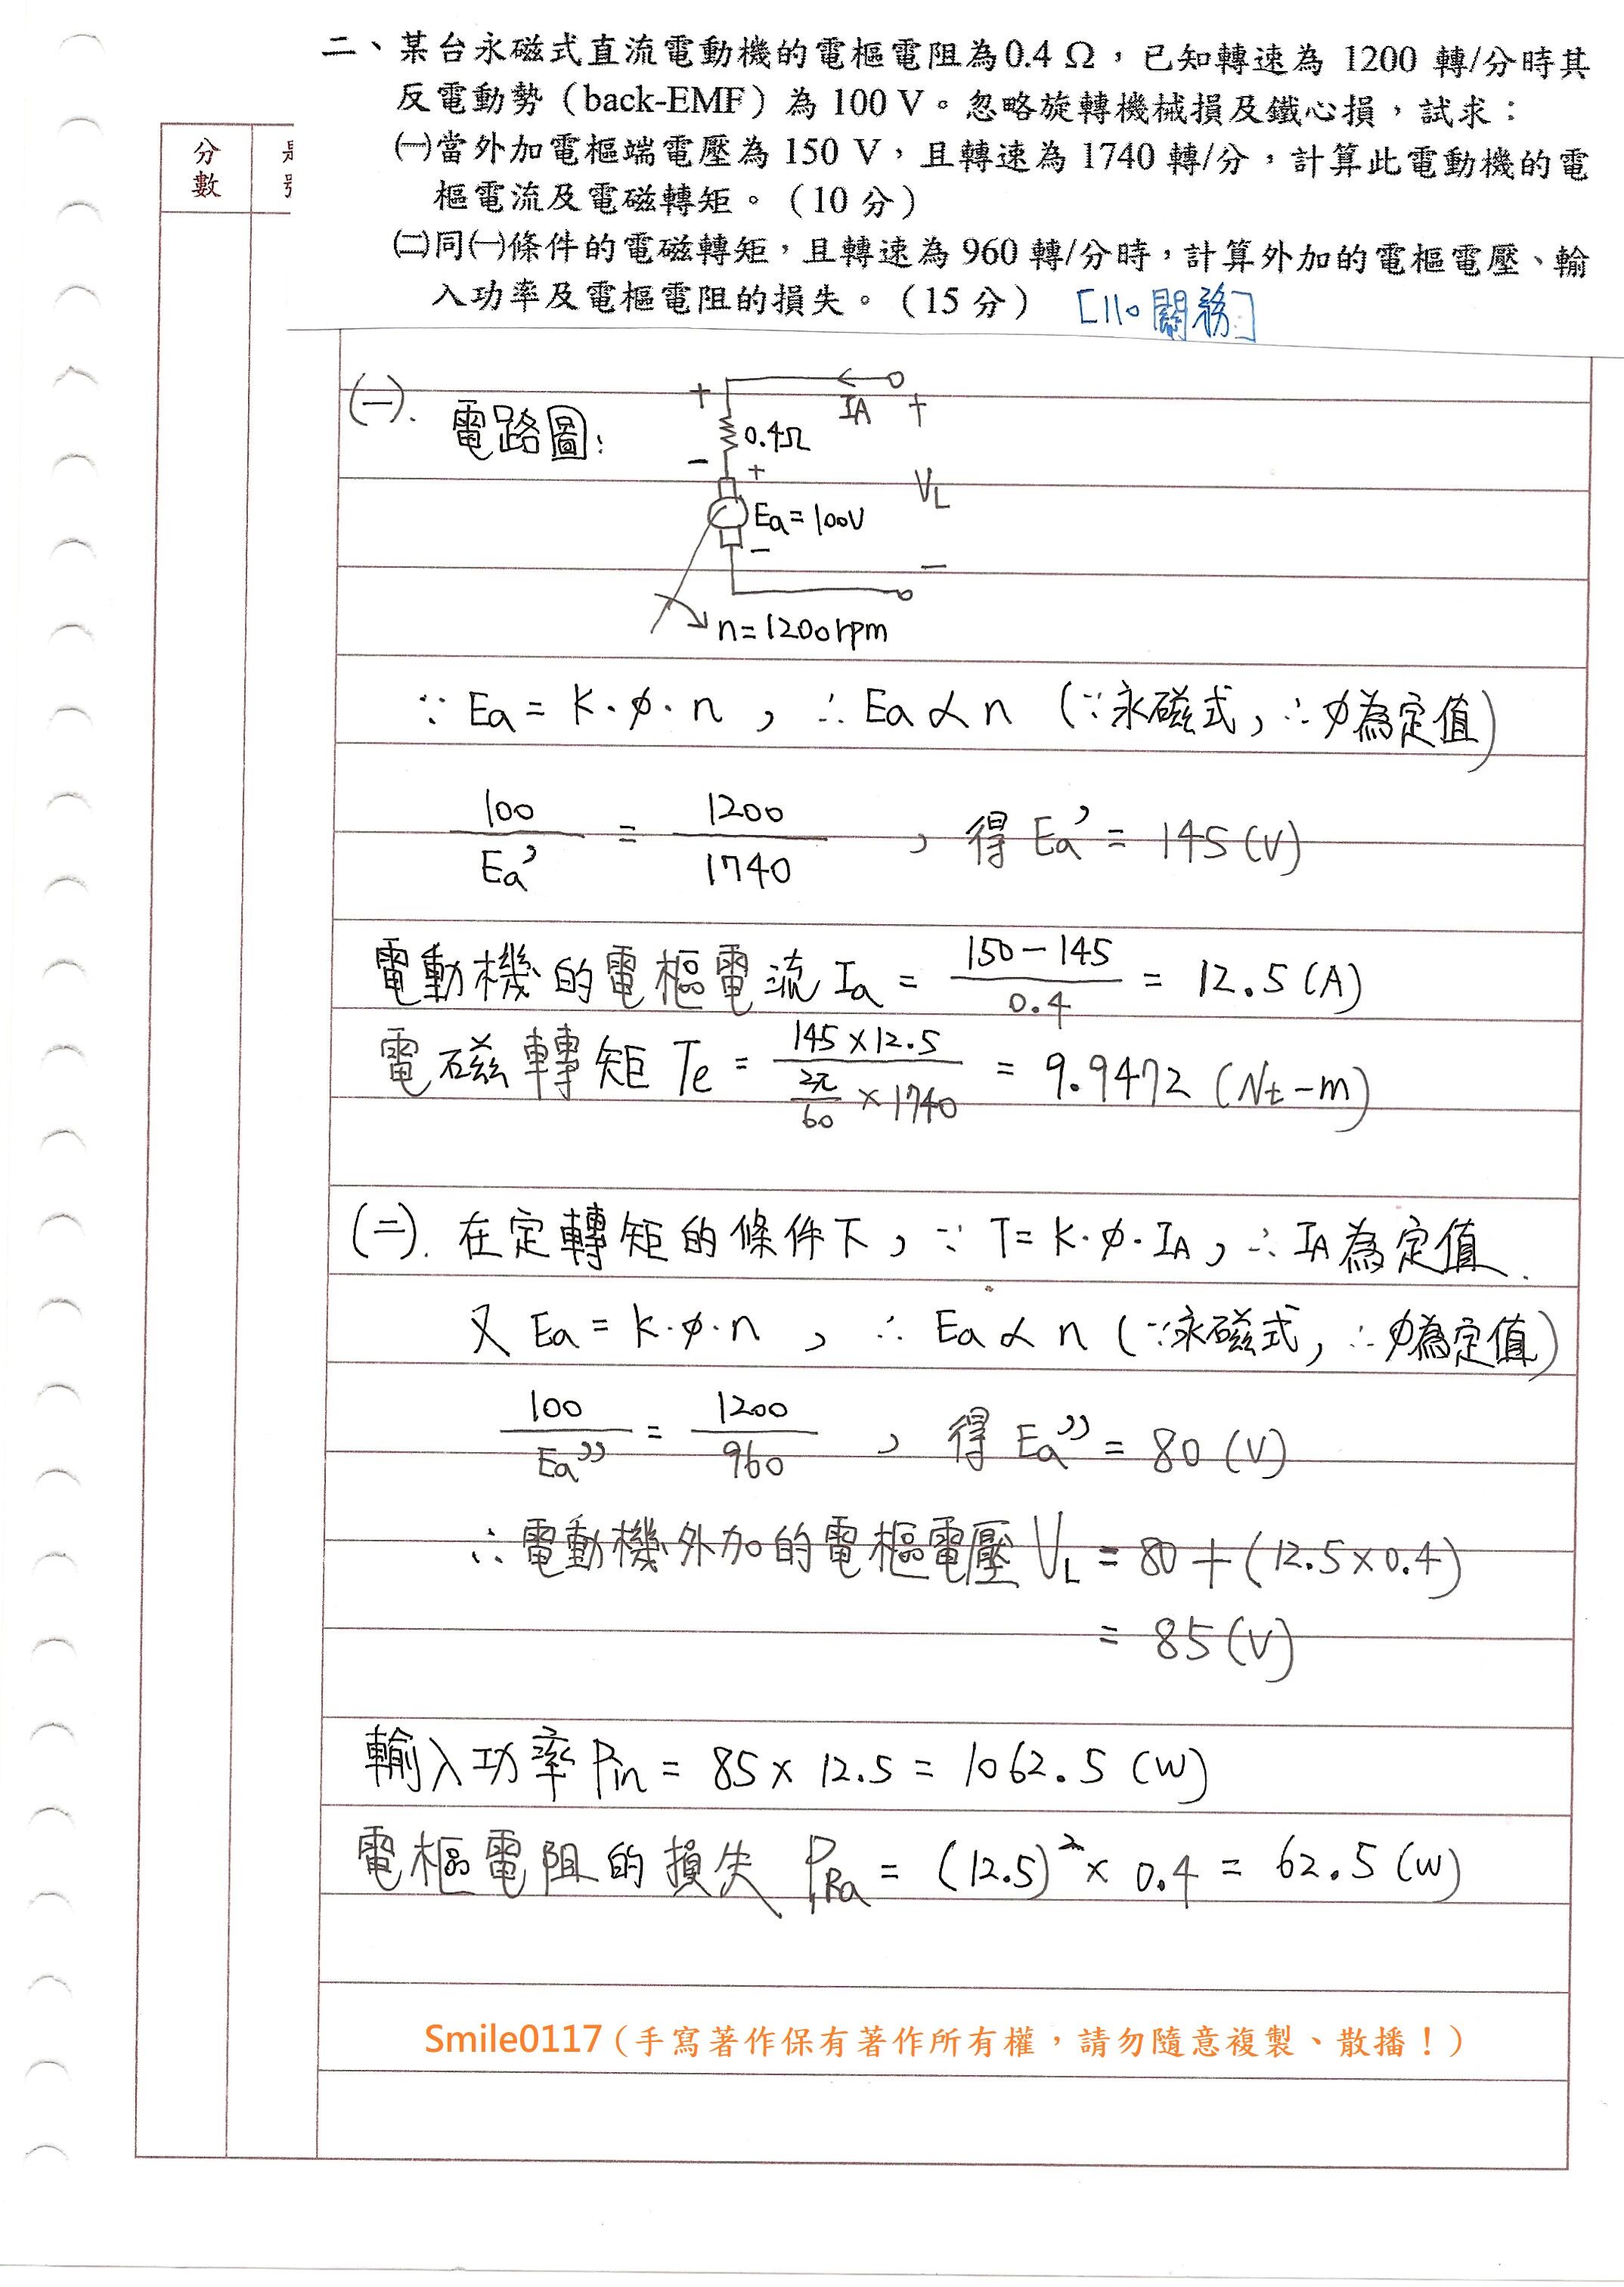 二、某台永磁式直流電動機的電樞電阻為0.4 Ω，已知轉速為 1200 轉/分時其
反電動勢（back-EMF）為 100 V。忽略旋轉機械損及鐵心損，試求：
㈠當外加電樞端電壓為 150 V，且轉速為 1740 轉/分，計算此電動機的電
樞電流及電磁轉矩。（10 分）
㈡同㈠條件的電磁轉矩，且轉速為 960 轉/分時，計算外加的電樞電壓、輸
入功率及電樞電阻的損失。（15 分） [110關務]
分數
(一). 電路圖:
+ IA +
0.4Ω
- +
VL
Ea=100V
- -
n=1200rpm
∵ Ea = K·φ·n , ∴ Ea ∝ n (∵永磁式, ∴φ為定值)
100/Ea' = 1200/1740 , 得 Ea' = 145(V)
電動機的電樞電流 Ia = (150-145)/0.4 = 12.5(A)
電磁轉矩 Te = (145×12.5)/(2π/60 × 1740) = 9.9472 (Nt-m)
(二). 在定轉矩的條件下, ∵ T=K·φ·IA, ∴ IA為定值.
又 Ea = K·φ·n , ∴ Ea ∝ n (∵永磁式, ∴φ為定值)
100/Ea'' = 1200/960 , 得 Ea'' = 80 (V)
∴電動機外加的電樞電壓 VL = 80+(12.5×0.4)
= 85(V)
輸入功率 Pin = 85×12.5 = 1062.5 (W)
電樞電阻的損失 PRa = (12.5)²×0.4 = 62.5(W)
Smile0117 (手寫著作保有著作所有權，請勿隨意複製、散播！)